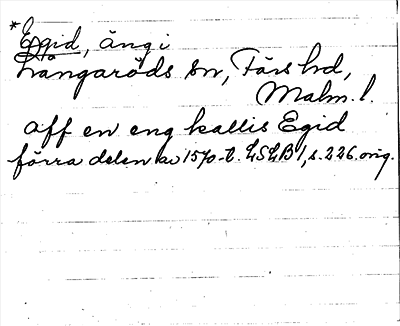 *Egid, äng i
Långaröds sn, Färs hd,
Malm. l.
aff en eng kallis Egid
förra delen av 1570-t. LSLB 1, s. 226. orig.